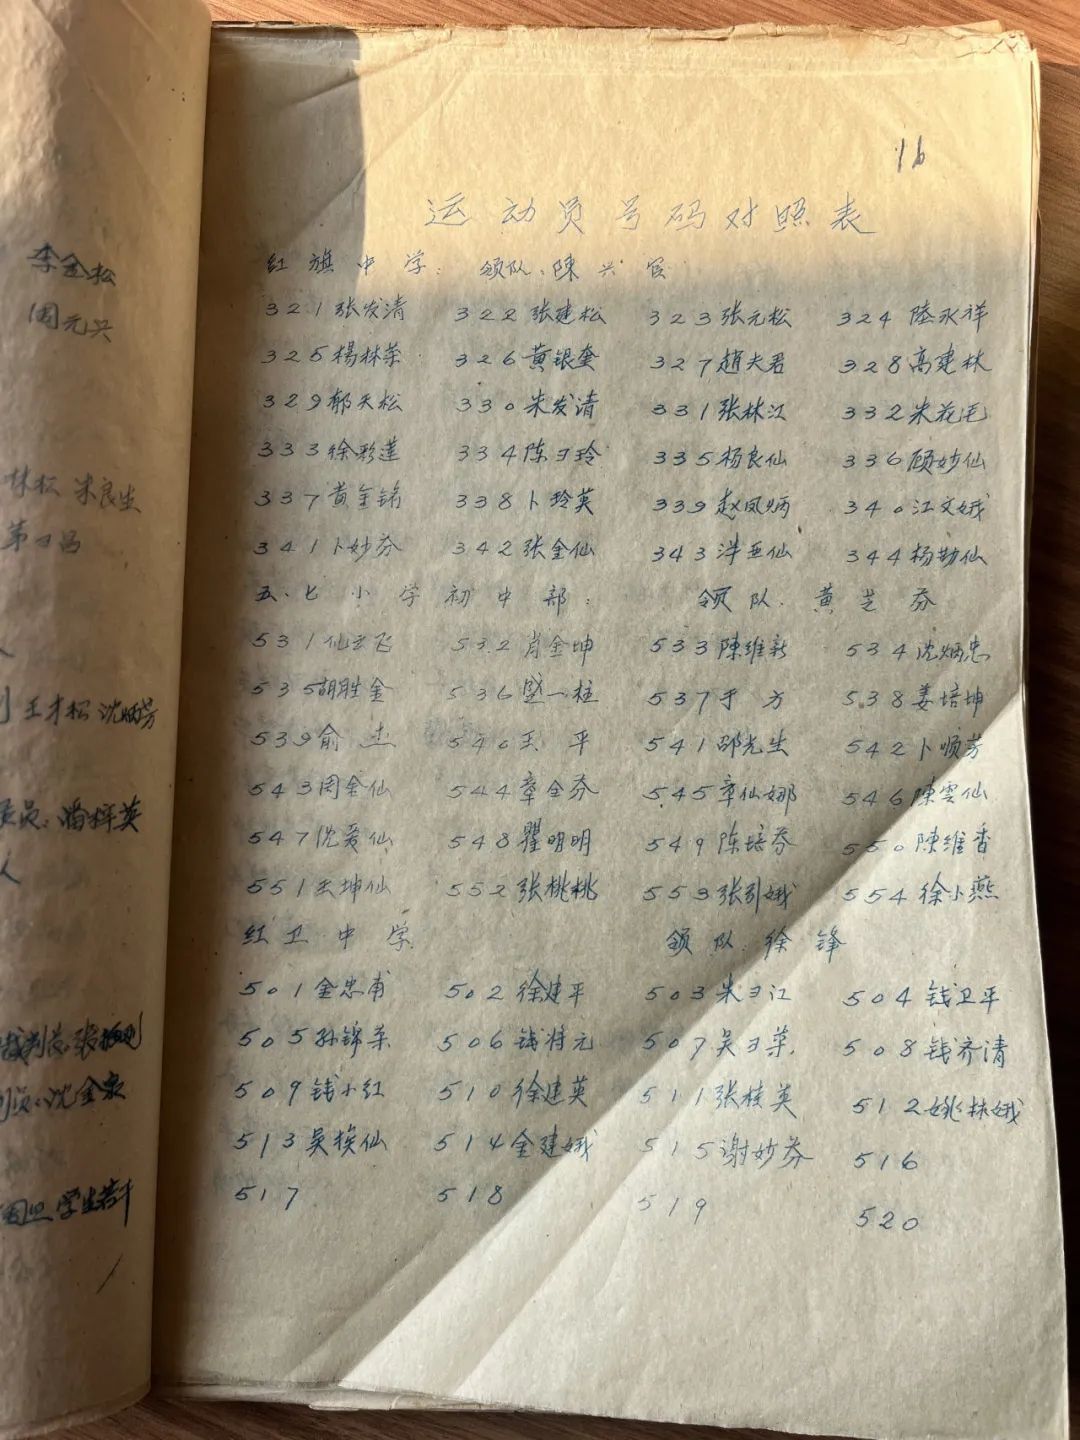 李金松
周元兴
林松 朱良生
王才松 沈炳芳
潘梓英
人
沈金泉
学生若干
16
运动员号码对照表
红旗中学: 领队:陳兴官
321张发清 322张建松 323张元松 324陸永祥
325楊林荣 326黄银奎 327趙夫君 328高建林
329郁天松 330朱发清 331张林江 332朱花毛
333徐彩莲 334陈玲 335杨良仙 336顾妙仙
337黄金铭 338卜玲英 339赵凤炳 340江文娥
341卜妙芬 342张金仙 343亚仙 344杨勤仙
五.七小学初中部: 领队:黄芝芬
531仙云飞 532肖金坤 533陳维新 534沈炳忠
535胡胜金 536盛一柱 537于方 538姜培坤
539俞杰 540王平 541邵先生 542卜顺芳
543周金仙 544章全芬 545章仙娜 546陳雲仙
547沈爱仙 548瞿明明 549陈培芬 550陳维香
551王坤仙 552张桃桃 553张引娥 554徐小燕
红卫中学 领队:徐锋
501金忠甫 502徐建平 503朱江 504钱卫平
505孙锦荣 506钱祥元 507吴荣 508钱齐清
509钱小红 510徐建英 511张桂英 512姚林娥
513吴仙 514金建娥 515谢妙芬 516
517 518 519 520